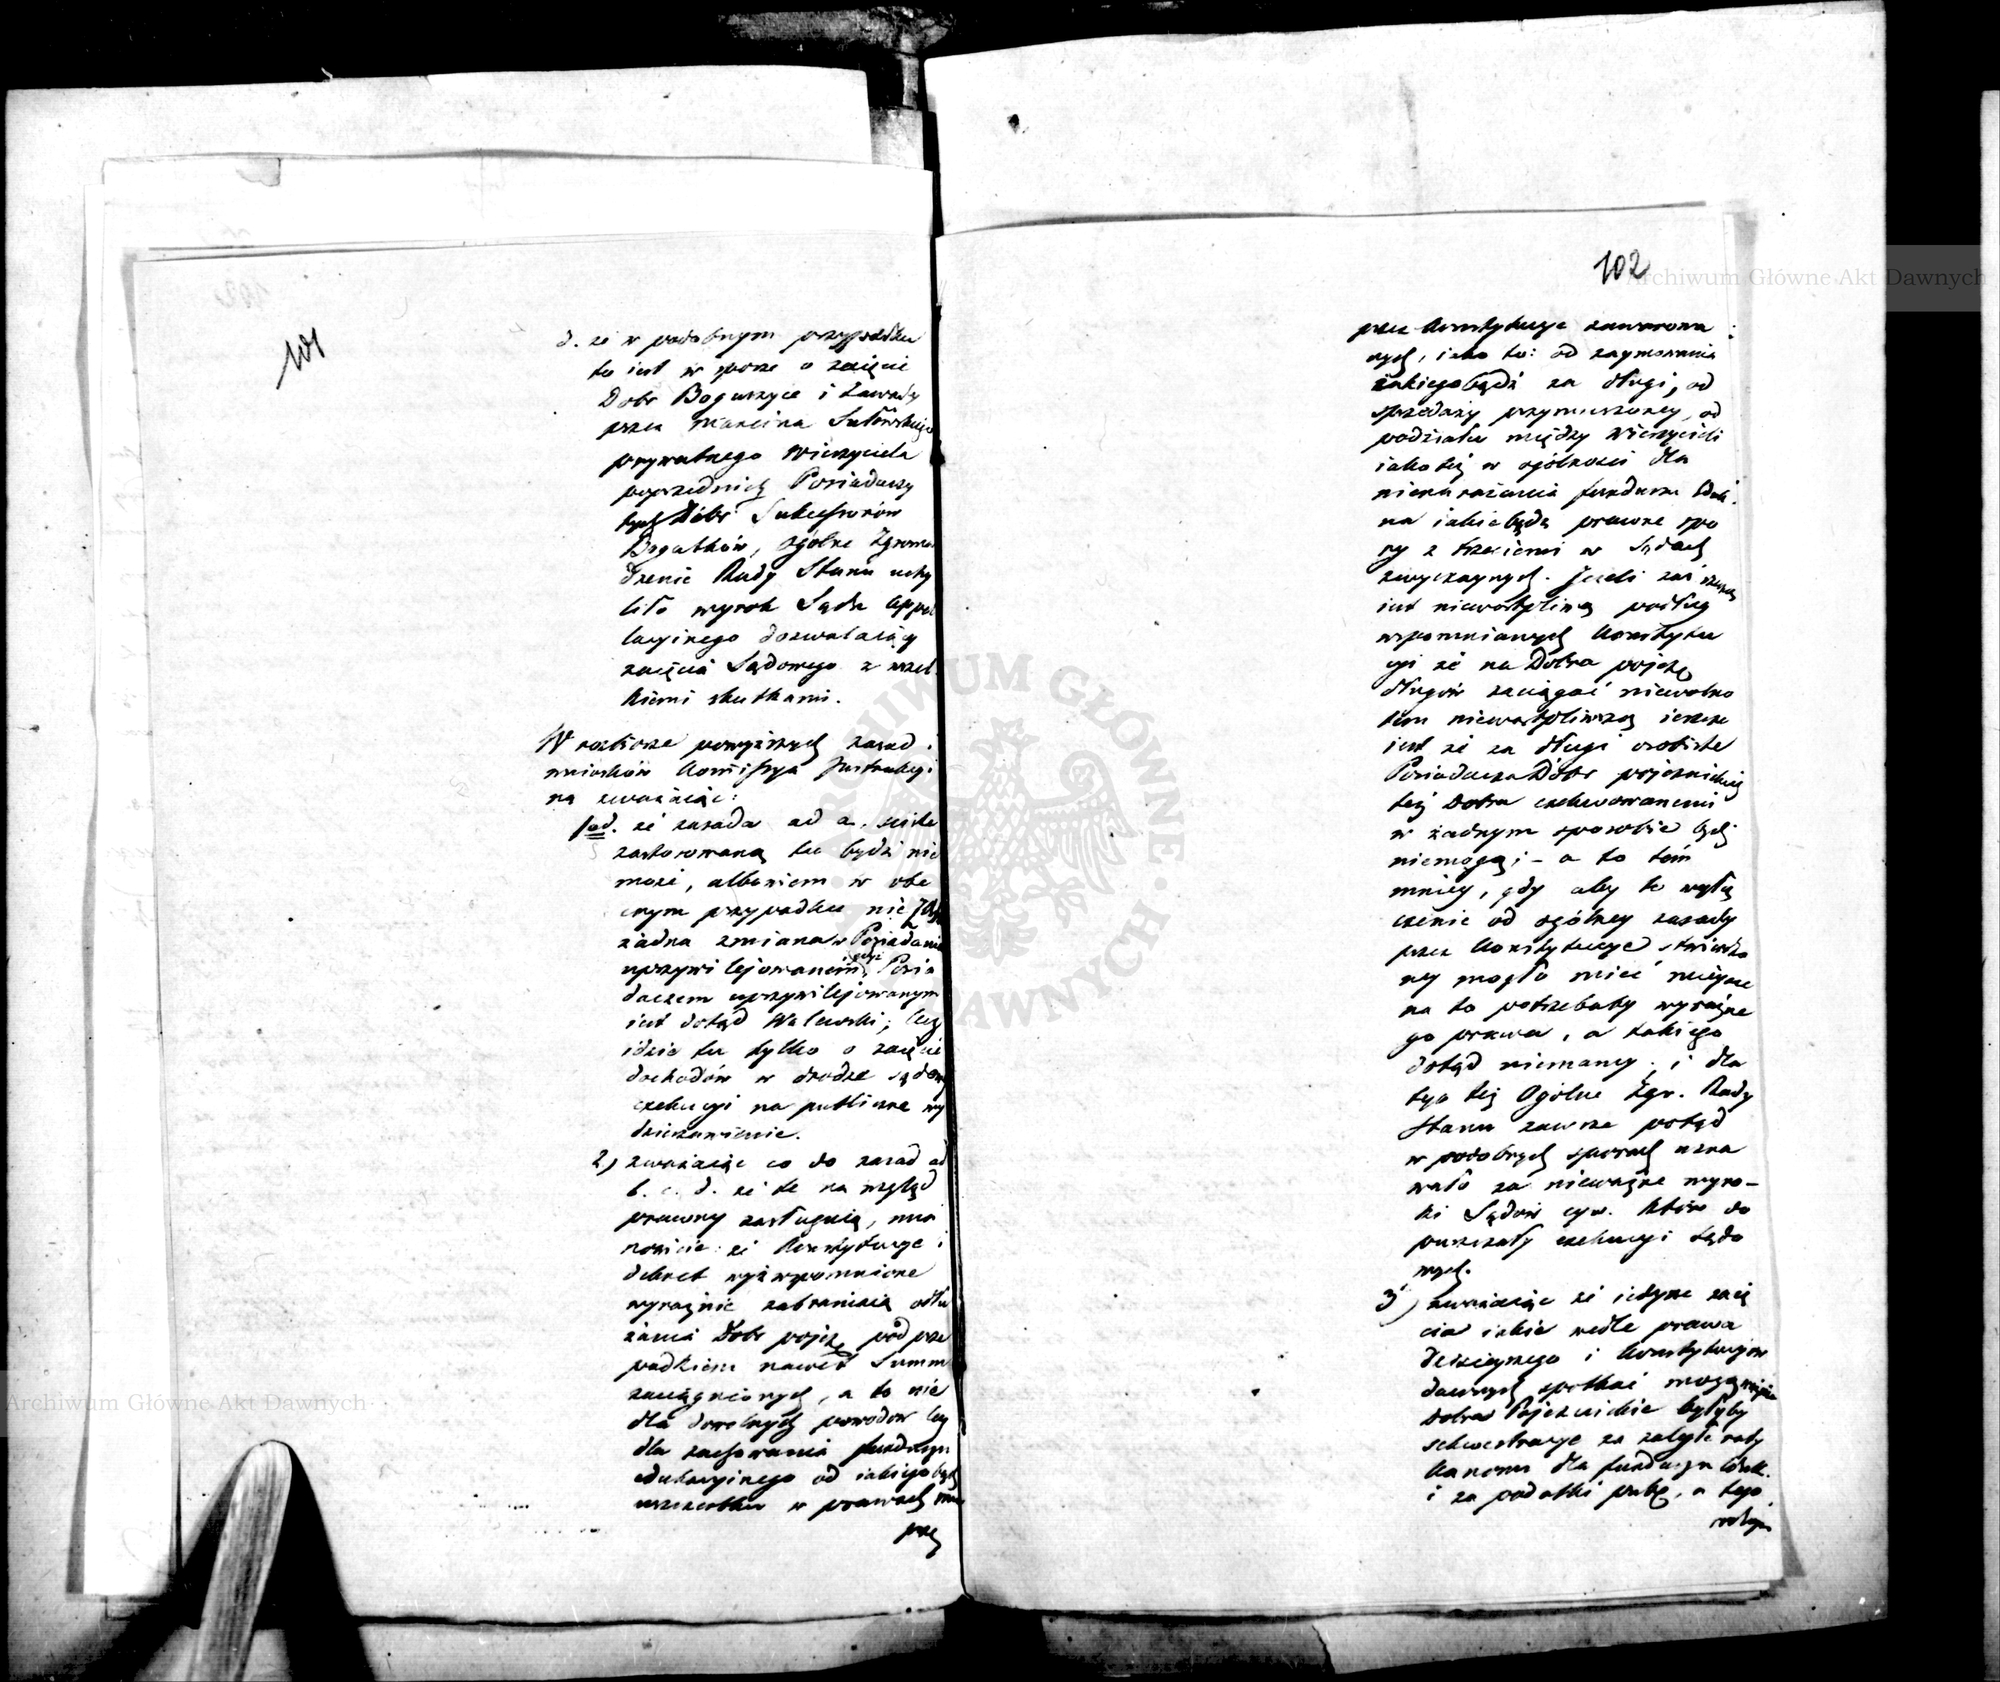 101
d. że w podobnym przypadku
to iest w sporze o zaięcie
Dobr Boguszyce i Zawady
przez Marcina
prywatnego Wierzyciela
poprzednich Posiadaczy
tych Dóbr Sukcessorów
Bogatków, ogólne Zgroma
dzenie Rady Stanu uchy
liło wyrok Sądu Appel
lacyinego dozwalaiący
zaięcia Sądowego z wszel
kiemi skutkami.
W rozbiorze powyższych zasad i
wniosków Kommissya Instrukcyi
na uważaiąc:
1od. że zasada ad a. ściśle
zastosowaną tu bydź nie
może, albowiem w obe
cnym przypadku nie
żadna zmiana w Posiadaniu
uprzywilejowanem, gdyż Posia
daczem uprzywilejowanym
iest dotąd Walewski; lecz
idzie tu tylko o zaięcie
dochodów w drodze sądowey
exekucyi na publiczne wy
dzierzawienie.
2) zważaiąc co do zasad ad
b. c. d. że te na wzgląd
prawny zasługuią, mia
nowicie że Konstytucye i
dekret wyż wspomnione
wyraźnie zabraniaią odłu
żania Dobr pojez. pod prze
padkiem nawet Summ
zaciągnionych, a to nie
dla dowolnych powodow lecz
dla zachowania funduszu
edukacyinego od iakiegobądź
uszczerbku w prawach
prze
102
przez Konstytucye zawarowa
nych, iako to: od zaymowania
iakiegobądź za długi, od
sprzedaży przymuszoney, od
podziału między Wierzycieli
iako też w ogólności dla
nienarażania funduszu Eduk.
na iakiebądź prawne spo
ry z trzeciemi w Sądach
zwyczaynych. Jeżeli zaś
iest niewątpliwą podług
wspomnianych Konstytu
cyi że na Dobra pojez.
długów zaciągać niewolno
tem niewątpliwszą ieszcze
iest że za długi osobiste
Posiadacza Dóbr pojezuickich
też Dobra exekwowanemi
w żadnym sposobie bydź
niemogą; - a to tém
mniey, gdy aby to wyłą
czenie od ogólney zasady
przez Konstytucye stwierdzo
ney mogło mieć mieysce
na to potrzebaby wyraźne
go prawa, a takiego
dotąd niemamy, i dla
tego też Ogólne Zgr. Rady
Stanu zawsze potąd
w podobnych sporach uzna
wało za nieważne wyro-
ki Sądów cyw. które do
puszczały exekucyi Sądo
wych.
3) zważaiąc że iedyne zaię
cia iakie wedle prawa
dzisieyszego i Konstytucyiow
dawnych spotkać mogą
Dobra Pojezuickie byłyby
sekwestracye za zaległe raty
Kanonu dla funduszu Eduk.
i za podatki publ., a tego